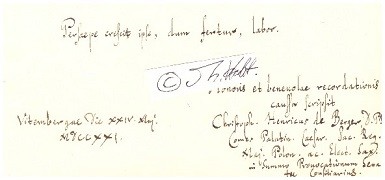 Persaepe crescit ipse, dum fertur, labor.
© J.h. Holdt.
honoris et benevolae recordationis
caussa scripsit
Vitembergae Die XXIV. Maj.
MDCCXXI.
Christoph. Henricus de Berger D. Ph
Comes Palatin. Caesar. Sac. Reg.
Maj. Polon. ac. Elect. Sax.
in Summo Provocationum Sena
tu Consiliarius.